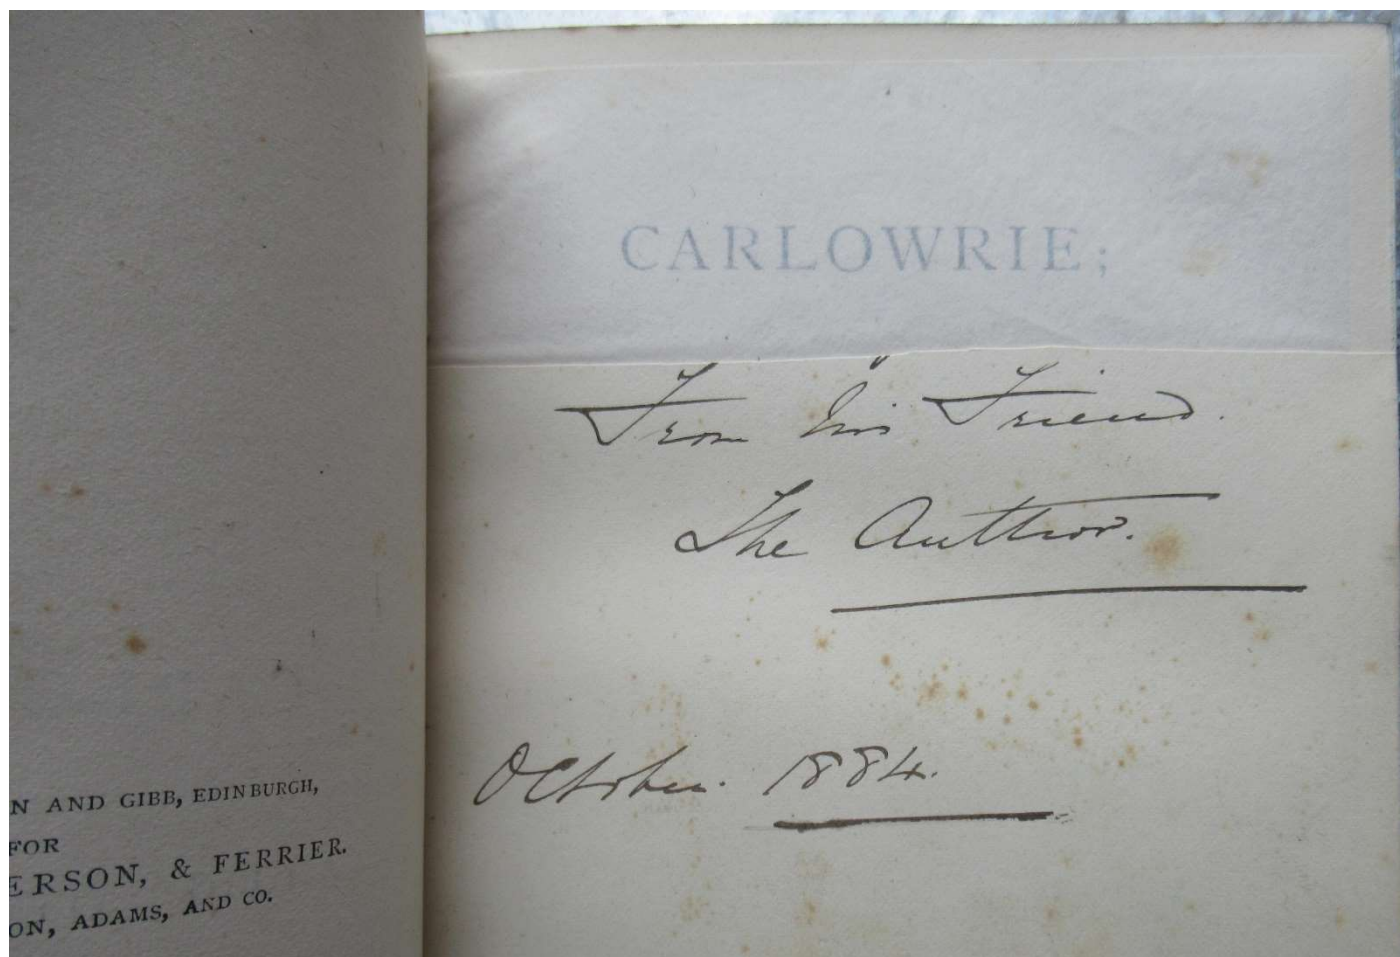 N AND GIBB, EDINBURGH,
FOR
ERSON, & FERRIER.
ON, ADAMS, AND CO.
CARLOWRIE;
From his Friend.
The Author.
October. 1884.